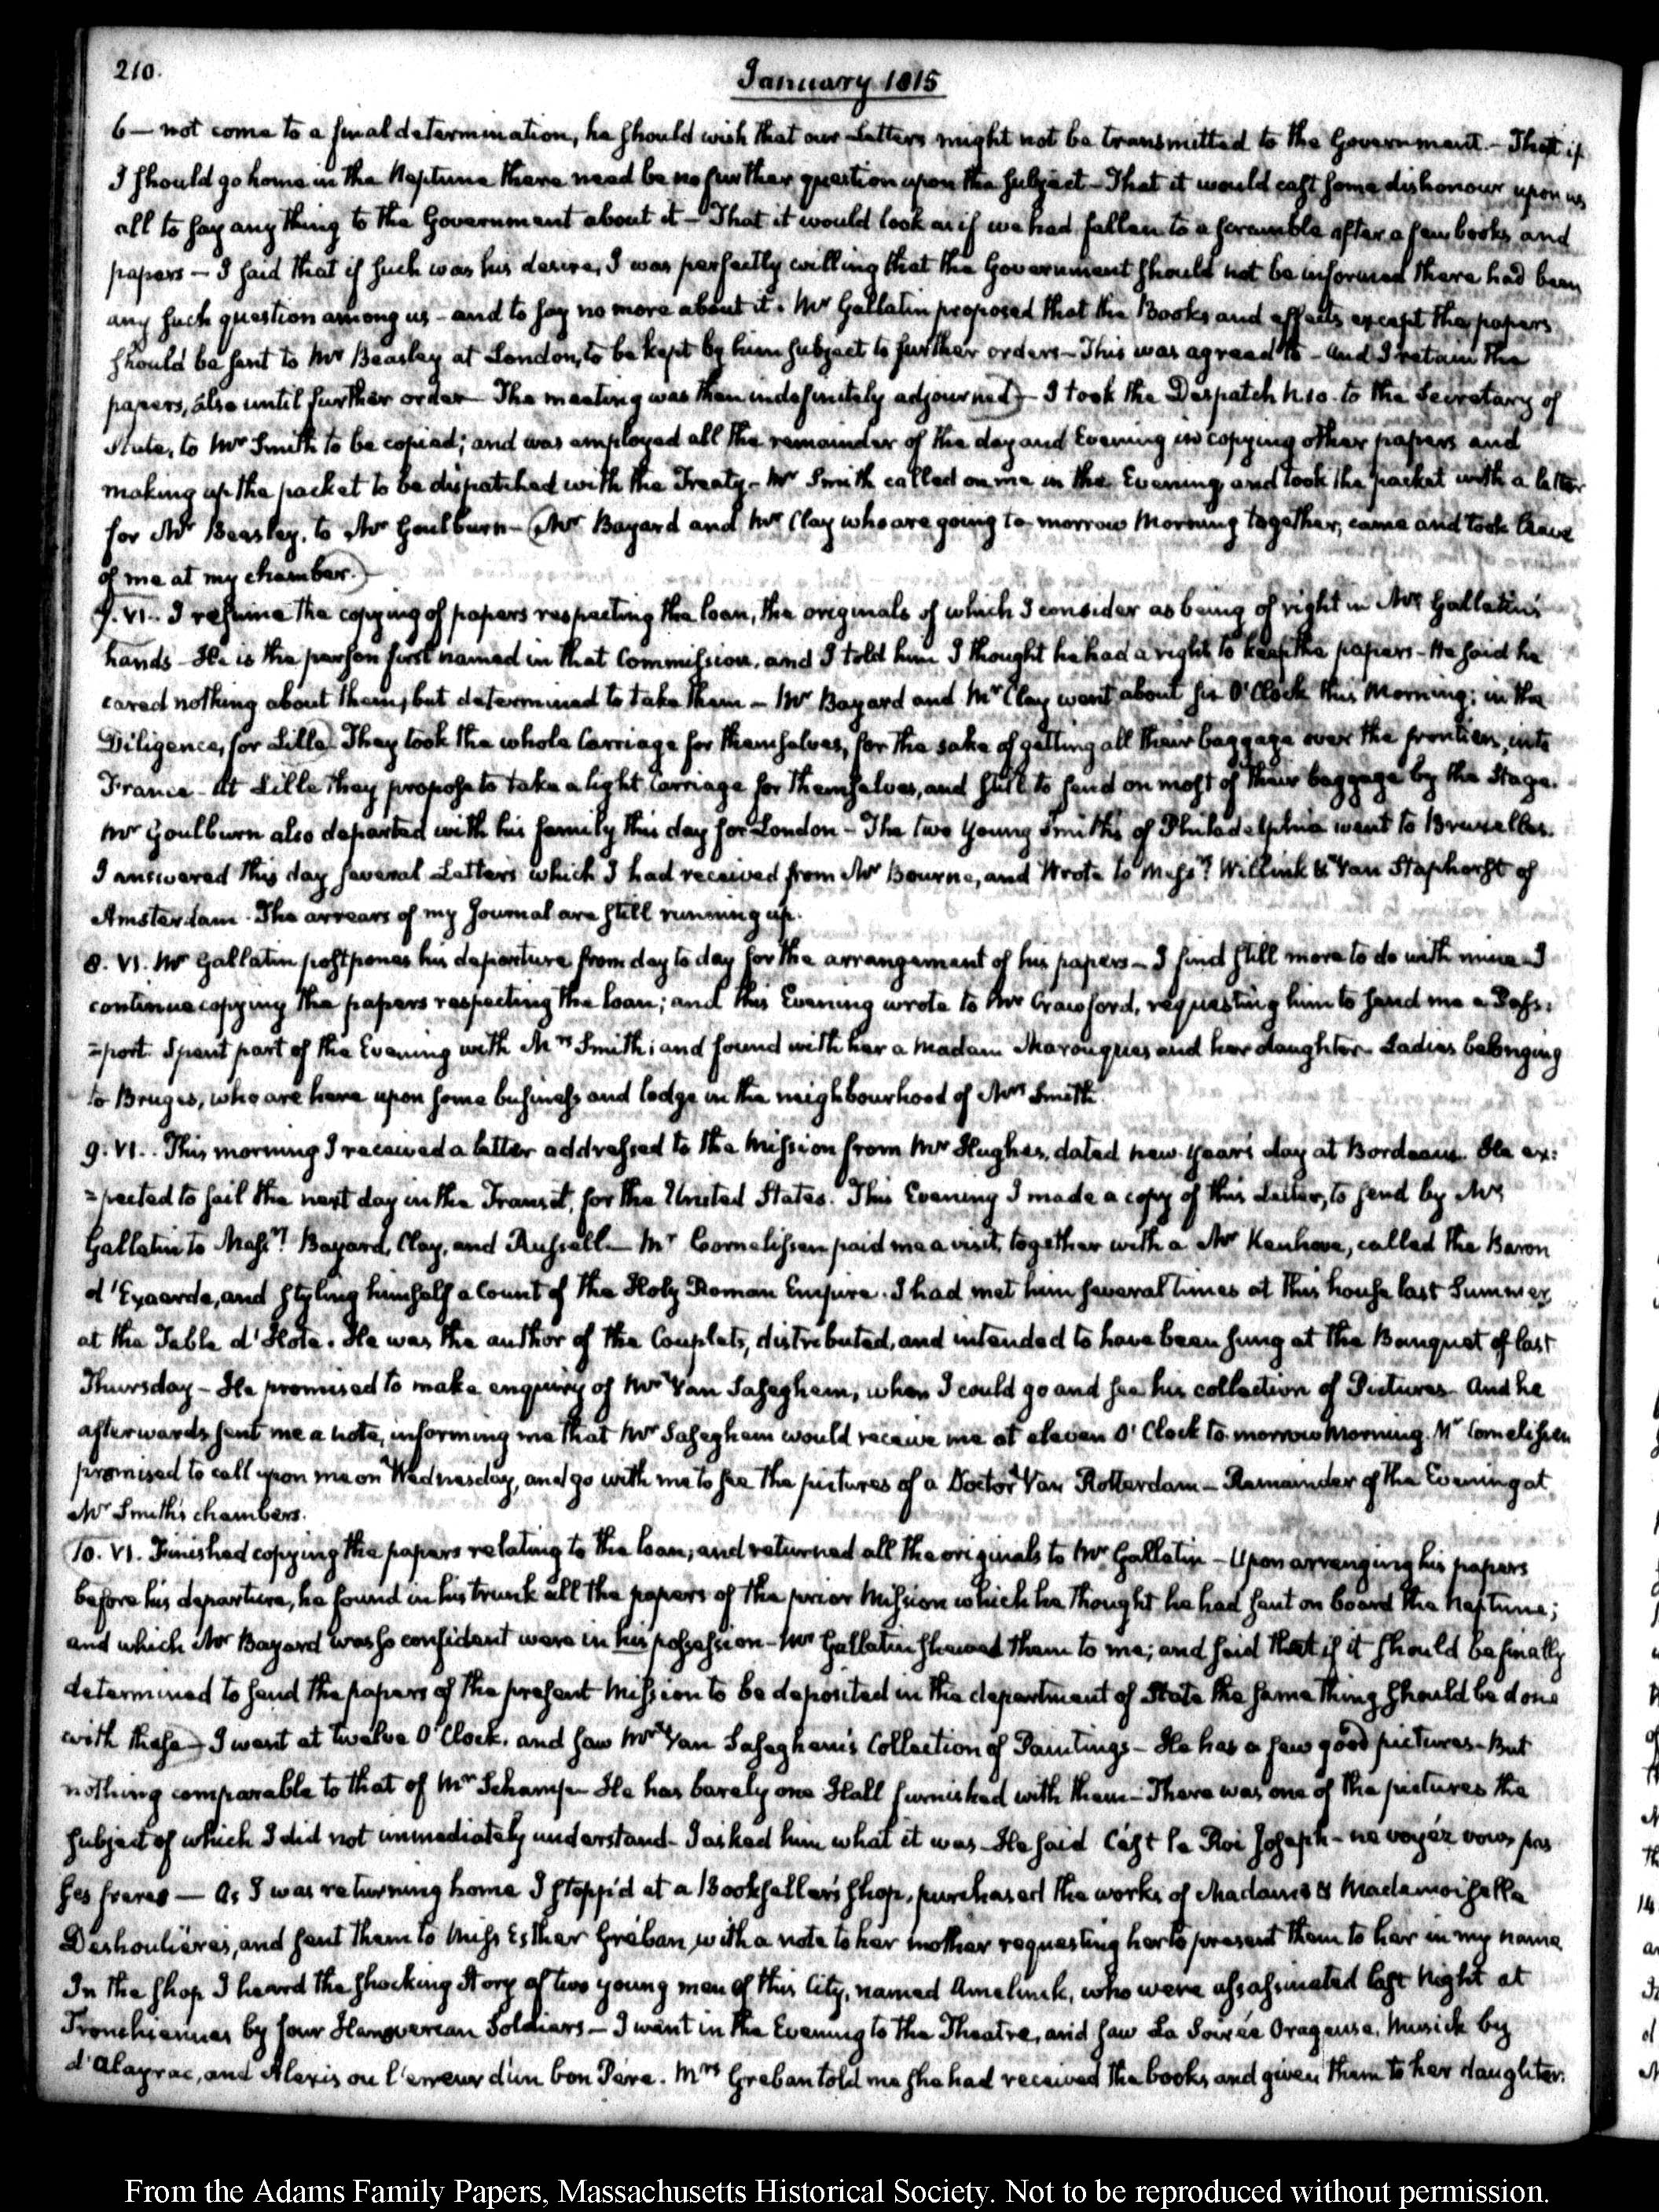 210.
January 1815
6 — not come to a final determination, he should wish that our Letters might not be transmitted to the Government. — That if
I should go home in the Neptune there need be no further question upon the subject — That it would cast some dishonour upon us
all to say any thing to the Government about it — That it would look as if we had fallen to a scramble after a few books and
papers — I said that if such was his desire, I was perfectly willing that the Government should not be informed there had been
any such question among us — and to say no more about it. Mr Gallatin proposed that the Books and effects except the papers
should be sent to Mr Beasley at London, to be kept by him subject to further orders — This was agreed to — and I retain the
papers, also until further order — The meeting was then indefinitely adjourned) — I took the Despatch N. 10. to the Secretary of
State, to Mr Smith to be copied; and was employed all the remainder of the day and Evening in copying other papers and
making up the packet to be dispatched with the Treaty — Mr Smith called on me in the Evening, and took the packet with a letter
for Mr Beasley, to Mr Goulburn — (Mr Bayard and Mr Clay who are going to-morrow Morning together, came and took leave
of me at my chamber.) —
7. VI. I resume the copying of papers respecting the loan, the originals of which I consider as being of right in Mr Gallatin's
hands — He is the person first named in that Commission, and I told him I thought he had a right to keep the papers — He said he
cared nothing about them, but determined to take them — Mr Bayard and Mr Clay went about six O'Clock this Morning; in the
Diligence, for Lille) They took the whole Carriage for themselves, for the sake of getting all their baggage over the frontiers, into
France — At Lille they propose to take a light Carriage for themselves, and still to send on most of their baggage by the Stage.
Mr Goulburn also departed with his family this day for London — The two young Smiths of Philadelphia went to Bruxelles.
I answered this day several Letters which I had received from Mr Bourne, and wrote to Messrs Willink & Van Staphorst of
Amsterdam. The arrears of my Journal are still running up.
8. VI. Mr Gallatin postpones his departure from day to day for the arrangement of his papers — I find still more to do with mine — I
continue copying the papers respecting the loan; and this Evening wrote to Mr Crawford, requesting him to send me a Pass:
=port. Spent part of the Evening with Mrs Smith; and found with her a Madam Marouques and her daughter — Ladies belonging
to Bruges, who are here upon some business and lodge in the neighbourhood of Mrs Smith.
9. VI. This morning I received a letter addressed to the Mission from Mr Hughes, dated new-years day at Bordeaux. He ex:
=pected to sail the next day in the Transit, for the United States. This Evening I made a copy of this Letter, to send by Mr
Gallatin to Messrs Bayard, Clay, and Russell — Mr Cornelissen paid me a visit, together with a Mr Kenhove, called the Baron
d'Exaerde, and styling himself a Count of the Holy Roman Empire. I had met him several times at this house last Summer,
at the Table d'Hote. He was the author of the Couplets, distributed, and intended to have been sung at the Banquet of last
Thursday — He promised to make enquiry of Mr Van Saseghem, when I could go and see his collection of Pictures — And he
afterwards sent me a note, informing me that Mr Saseghem would receive me at eleven O'Clock to-morrow Morning. Mr Cornelissen
promised to call upon me on Wednesday, and go with me to see the pictures of a Doctor Van Rotterdam — Remainder of the Evening at
Mr Smith's chambers.
10. VI. Finished copying the papers relating to the loan; and returned all the originals to Mr Gallatin — Upon arranging his papers
before his departure, he found in his trunk all the papers of the prior Mission which he thought he had sent on board the Neptune;
and which Mr Bayard was so confident were in his possession — Mr Gallatin shewed them to me; and said that if it should be finally
determined to send the papers of the present Mission to be deposited in the department of State the same thing should be done
with these) — I went at twelve O'Clock, and saw Mr Van Saseghem's Collection of Paintings — He has a few good pictures — But
nothing comparable to that of Mr Schamp — He has barely one Hall furnished with them — There was one of the pictures the
subject of which I did not immediately understand — I asked him what it was — He said C'est le Roi Joseph — ne voyéz vous pas
ses freres — As I was returning home I stopp'd at a Bookseller's shop, purchased the works of Madame & Mademoiselle
Deshoulières, and sent them to Miss Esther Gréban, with a note to her mother requesting her to present them to her in my name.
In the shop I heard the shocking story of two young men of this City, named Amelinck, who were assassinated last Night at
Tronchiennes by four Hanoverian Soldiers — I went in the Evening to the Theatre, and saw La Soirée Orageuse, Musick by
d'Alayrac, and Alexis ou l'erreur d'un bon Père. Mrs Greban told me she had received the books and given them to her daughter.
From the Adams Family Papers, Massachusetts Historical Society. Not to be reproduced without permission.